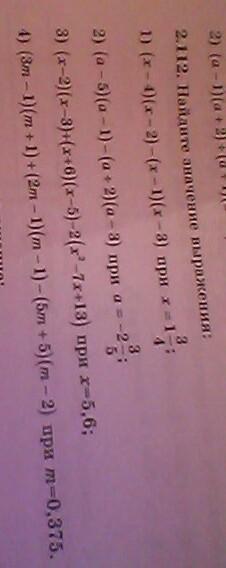 2) (a−1)(a+2)+(a+1)(
2.112. Найдите значение выражения:
1) (x−4)(x−2)−(x−1)(x−3) при x=1 3/4;
2) (a−5)(a−1)−(a+2)(a−3) при a=−2 3/5;
3) (x−2)(x−3)+(x+6)(x−5)−2(x²−7x+13) при x=5,6;
4) (3m−1)(m+1)+(2m−1)(m−1)−(5m+5)(m−2) при m=0,375.